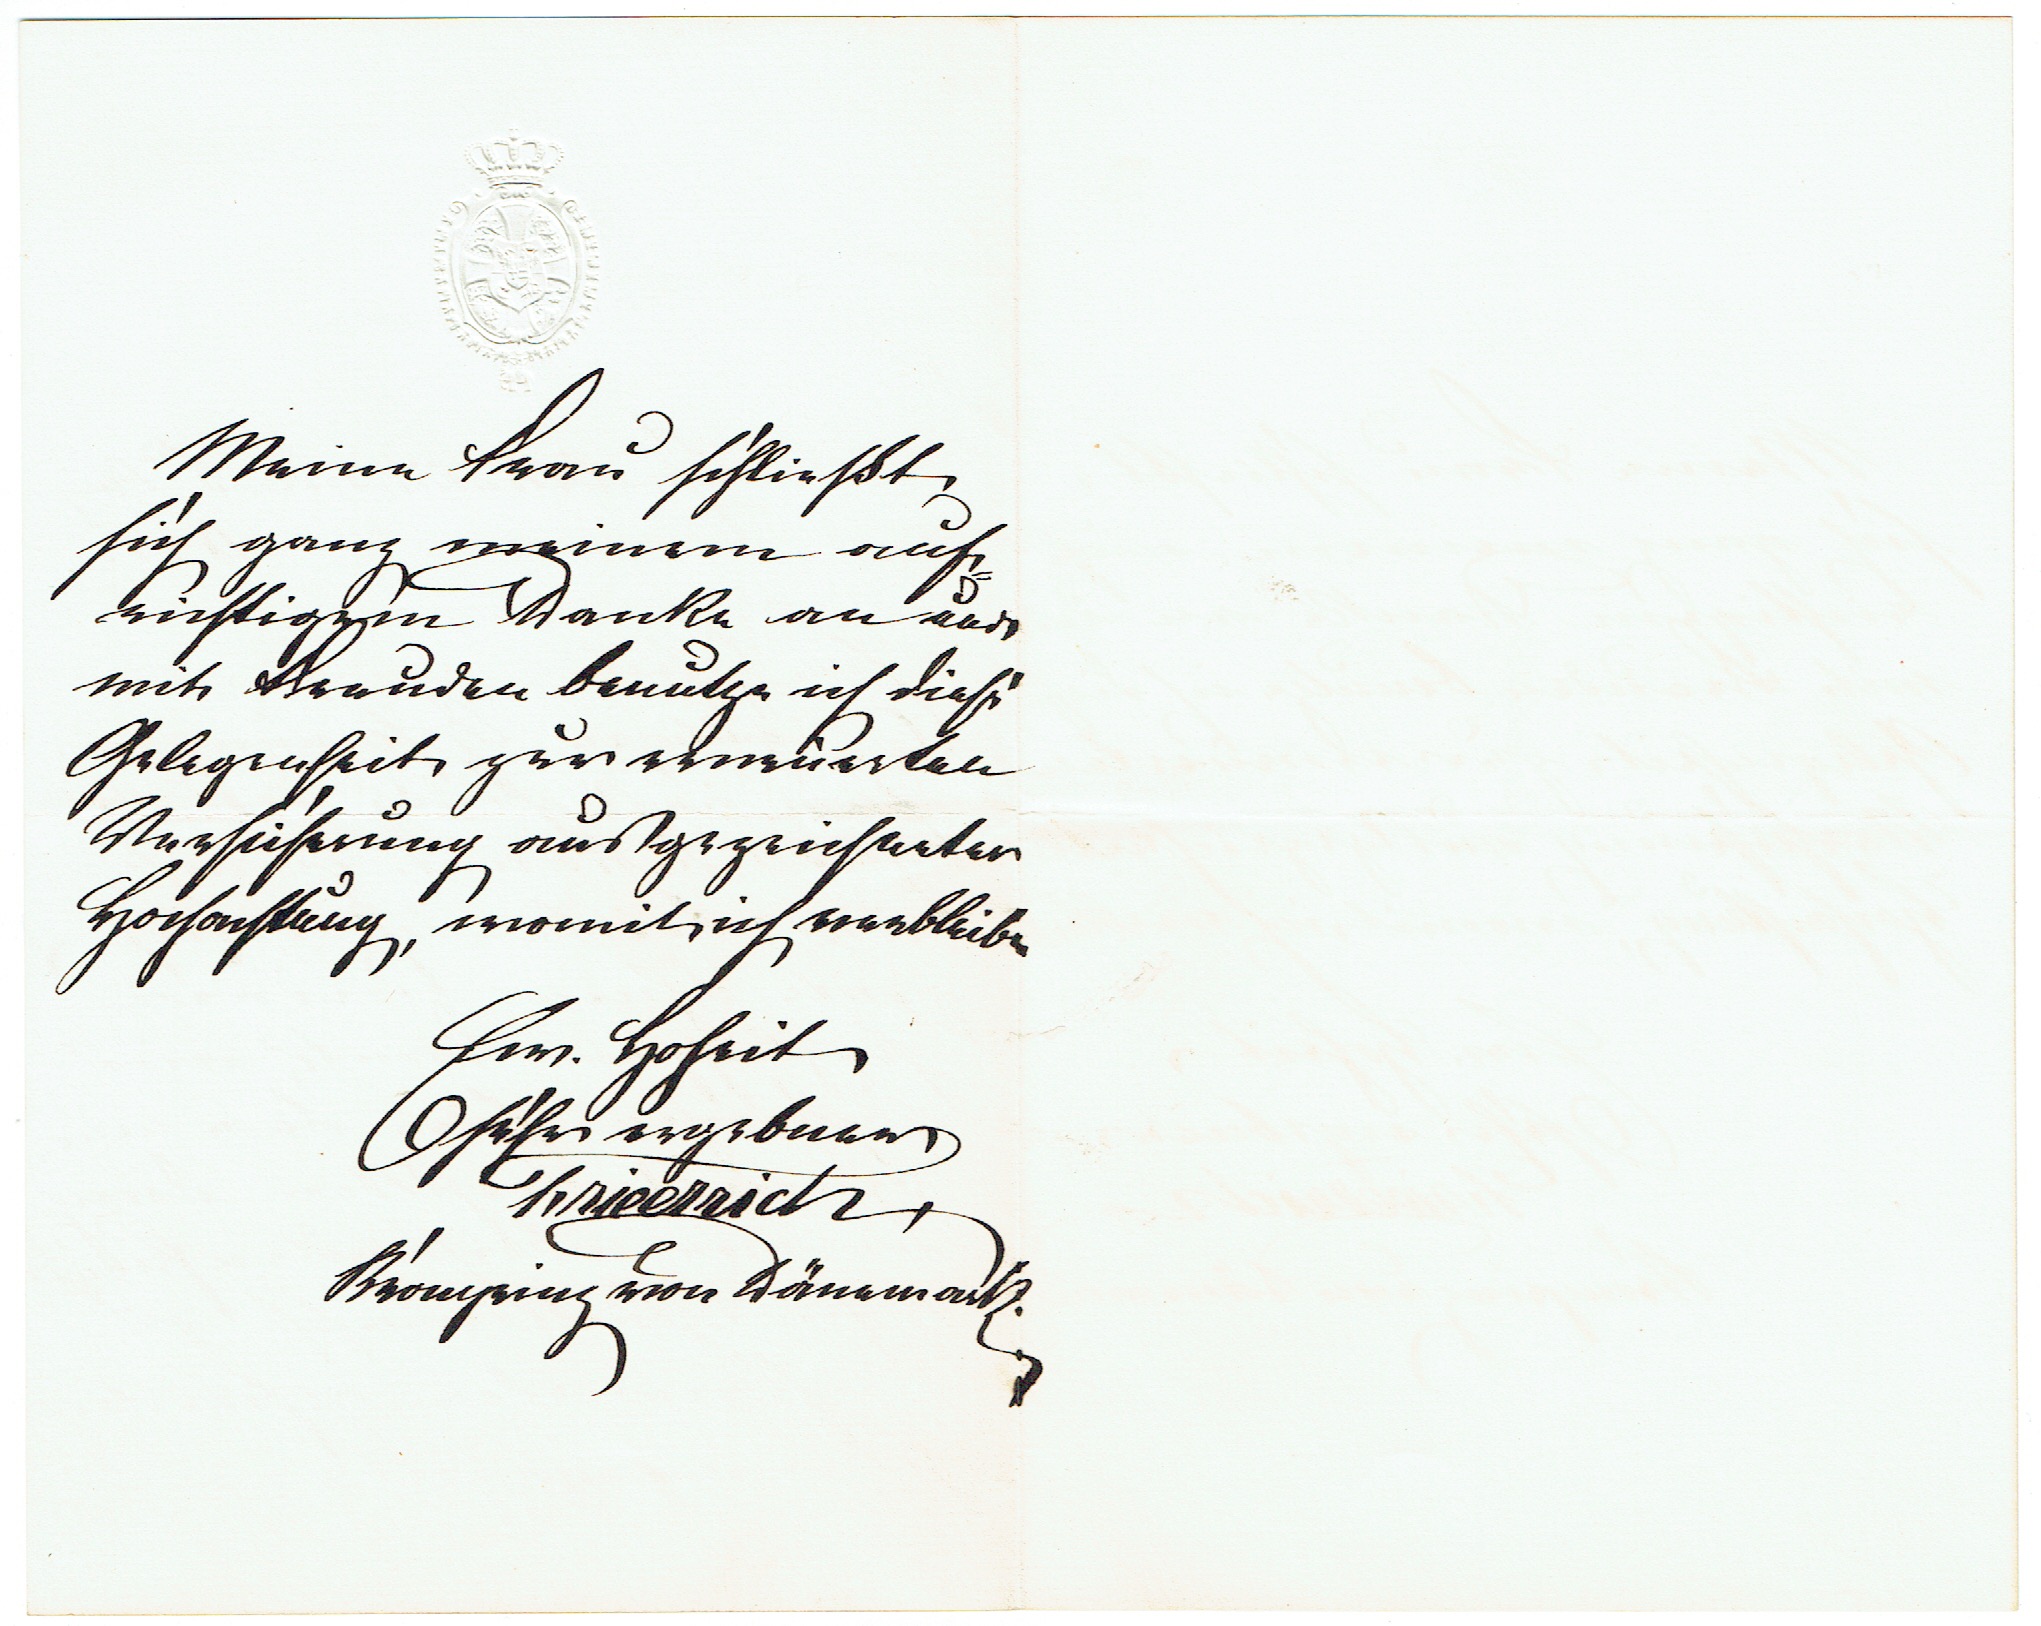 Meine Frau schließt
sich ganz meinem auf=
richtigem Danke an und
mit Freuden benutze ich diese
Gelegenheit zur erneuerten
Versicherung ausgezeichneter
Hochachtung, womit ich verbleibe
Ew. Hoheit
sehr ergebener
Friederich
Kronprinz von Dänemark.